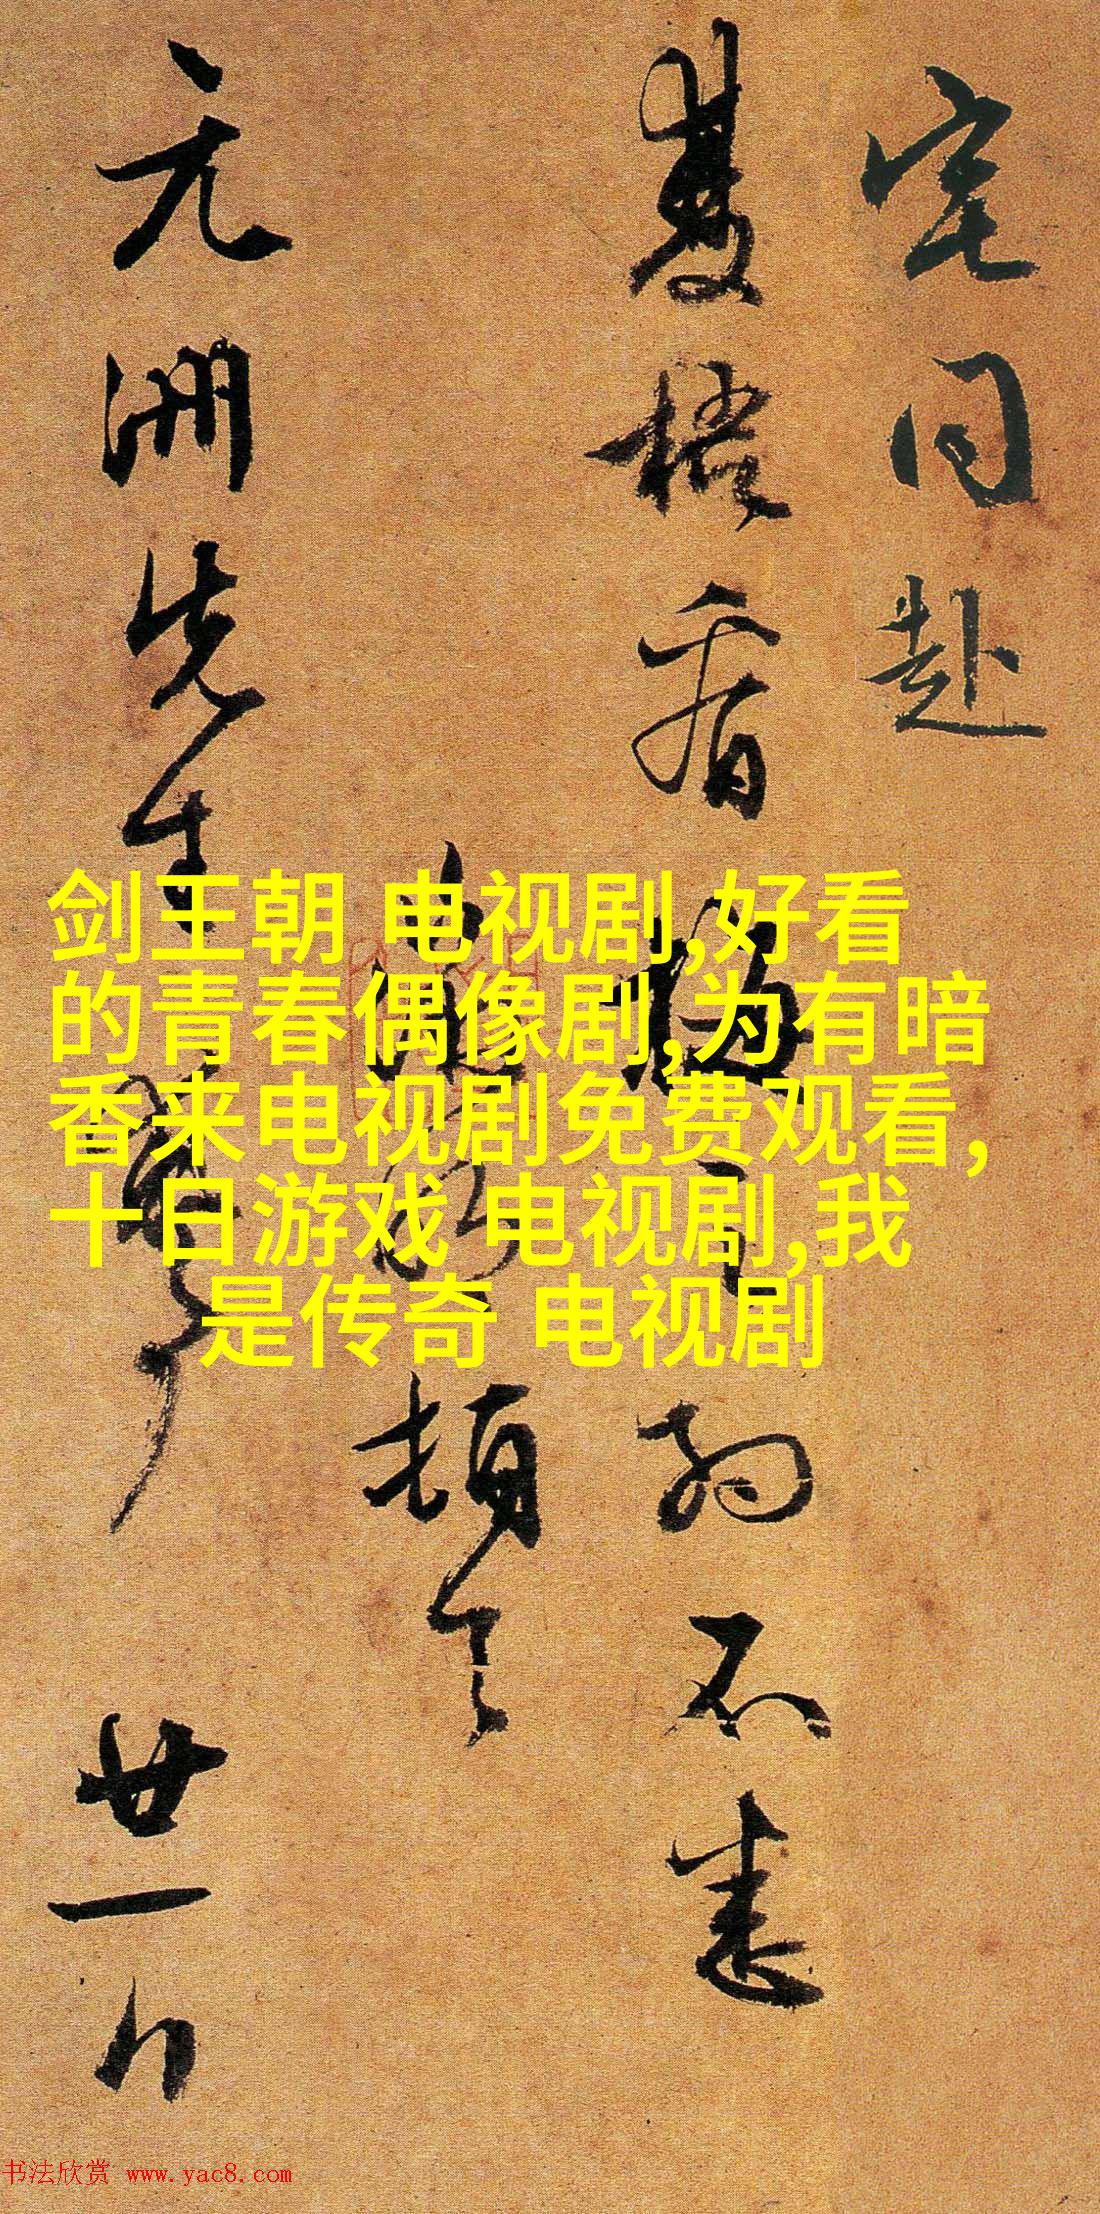 宅同赴
雙梧看梅 不悉
頓首
元洲先生 廿一日
剑王朝 电视剧,好看
的青春偶像剧,为有暗
香来电视剧免费观看,
十日游戏 电视剧,我
是传奇 电视剧
书法欣赏 www.yac8.com